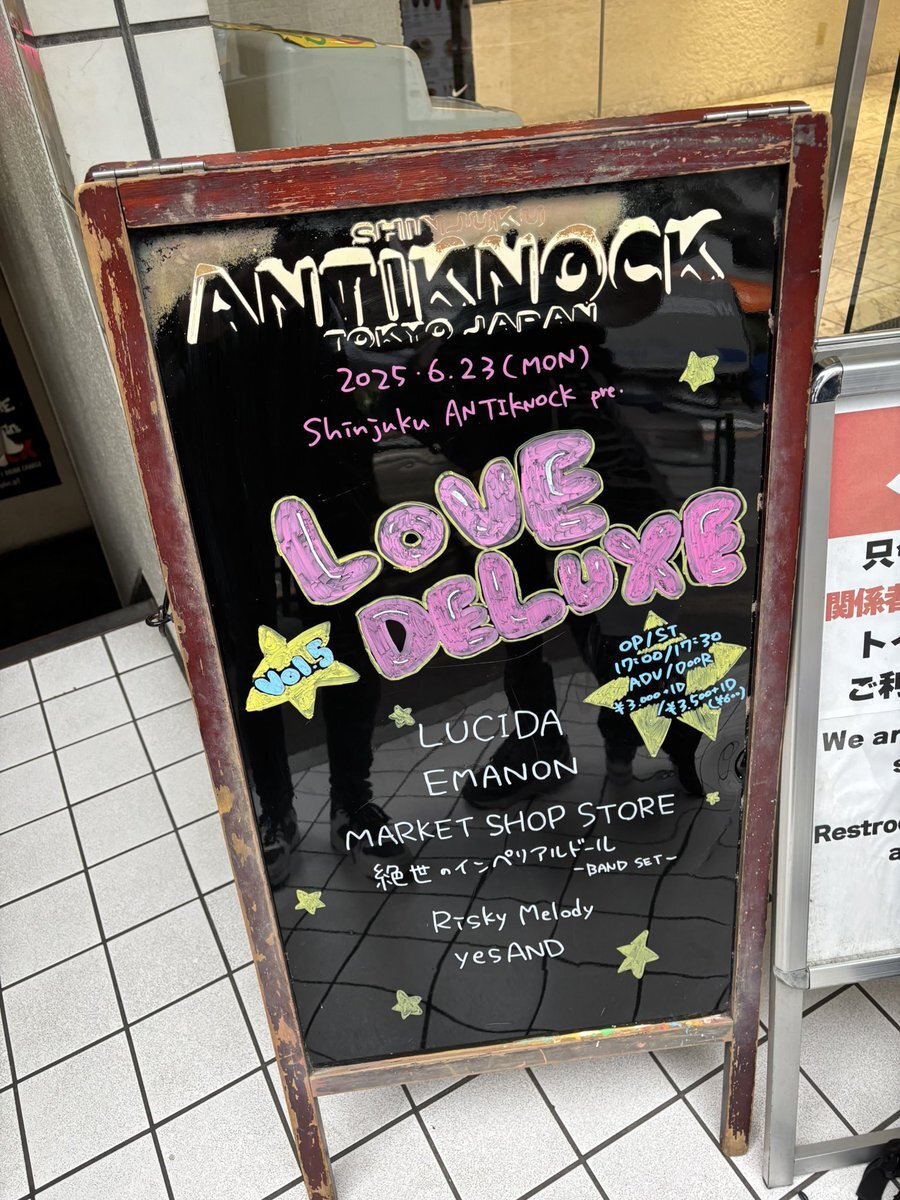 SHINJUKU
ANTIKNOCK
TOKYO JAPAN
2025.6.23(MON)
Shinjuku ANTIKNOCK pre.
LOVE
DELUXE
Vol.5
OP/ST
17:00/17:30
ADV/DOOR
¥3.000+1D
/¥3.500+1D
(¥600)
LUCIDA
EMANON
MARKET SHOP STORE
絶世のインペリアルドール
-BAND SET-
Risky Melody
yesAND
関係者
ト
ご利
We ar
Restro